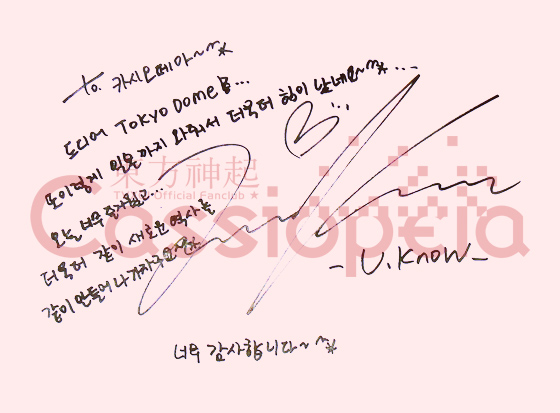 To. 카시오페아~~*
드디어 TOKYO DOME을...
또 이렇게 일본까지 와줘서 더욱더 힘이 납네요~~* ...
오늘 너무 감사했고...
더욱더 같이 새로운 역사를
같이 만들어 나가자구요
- U.Know -
너무 감사합니다~~*
東方神起
The Official Fanclub ★
Cassiopeia